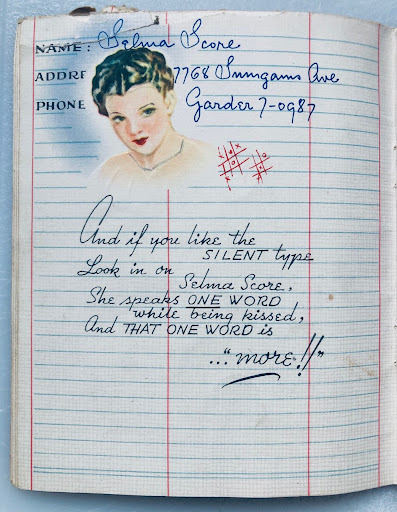 NAME: Selma Score
ADDRE 7768 Ave
PHONE Garder 7-0987
And if you like the
SILENT type
Look in on
Selma Score,
She speaks ONE WORD
while being kissed,
And THAT ONE WORD is
..."more!!"